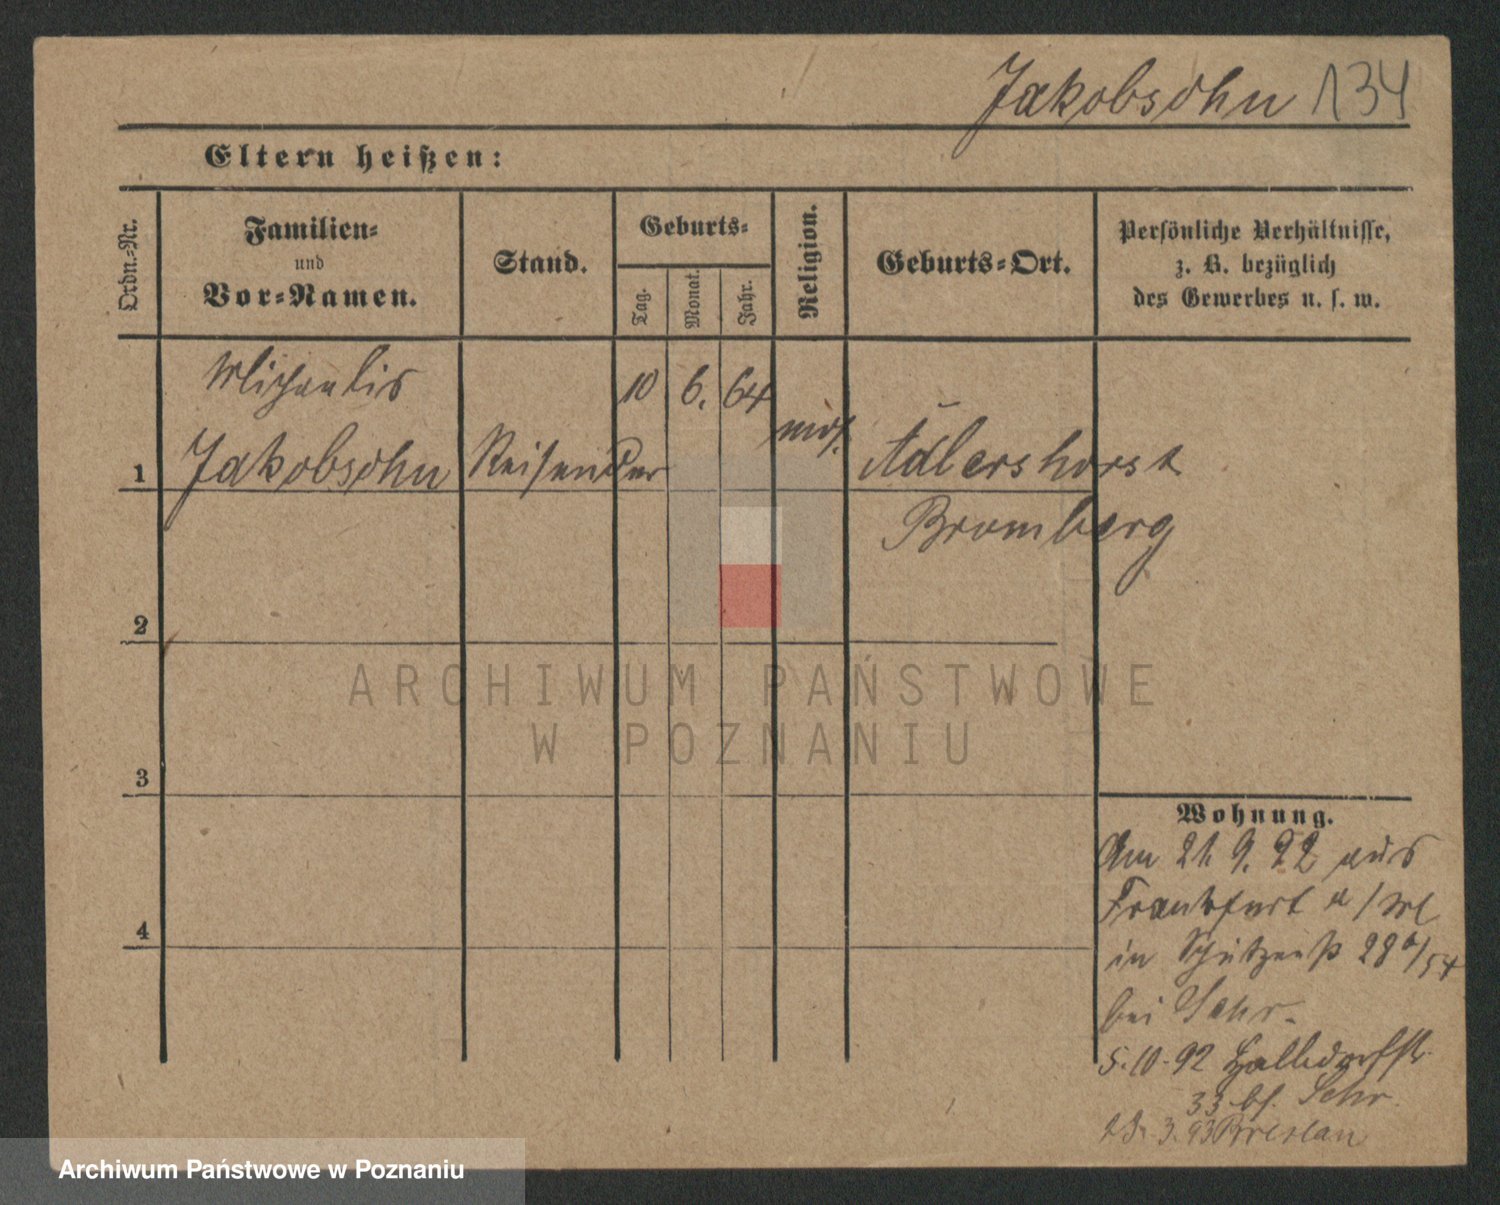 Jakobsohn 134
Eltern heißen:
Ordn.-Nr.
Familien-
und
Vor-Namen.
Stand.
Geburts-
Tag.
Monat.
Jahr.
Religion.
Geburts-Ort.
Persönliche Verhältnisse,
z. B. bezüglich
des Gewerbes u. s. w.
Michaelis
10 6. 64
mos.
1 Jakobsohn Reisender Adlershorst
Bromberg
2
ARCHIWUM PAŃSTWOWE
W POZNANIU
3
Wohnung.
Am 21. 9. 92 aus
Frankfurt a/M
in Schützenstr 28a/
bei
5.10.92
33 bei
23. 3. 93 Breslau
4
Archiwum Państwowe w Poznaniu